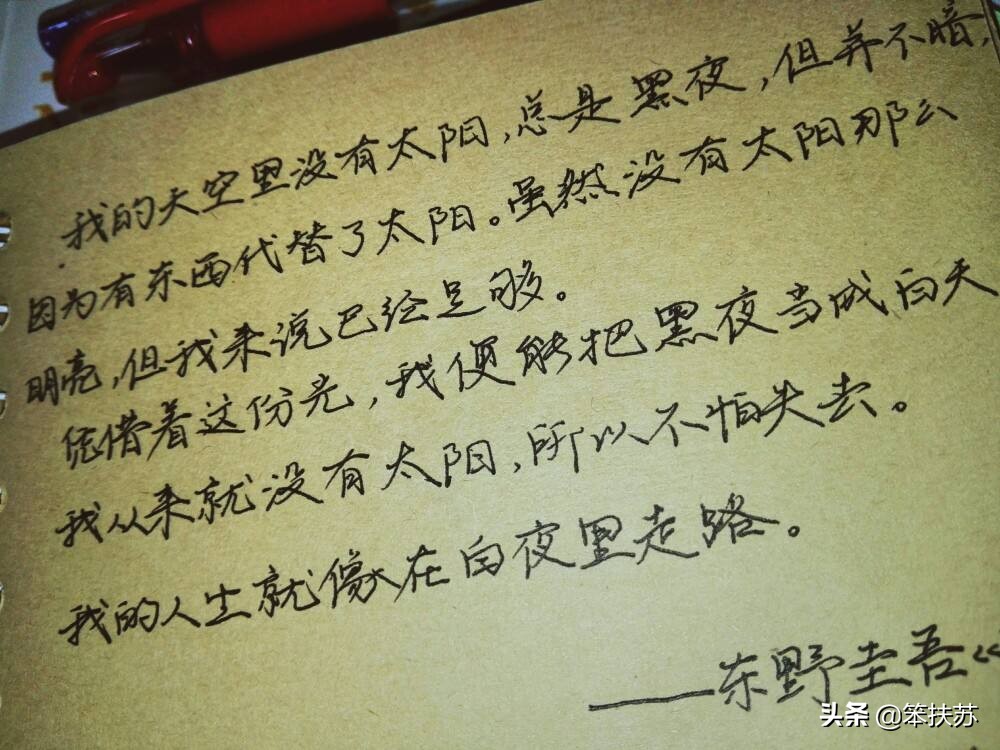 我的天空里没有太阳，总是黑夜，但并不暗，
因为有东西代替了太阳。虽然没有太阳那么
明亮，但我来说已经足够。
凭借着这份光，我便能把黑夜当成白天
我从来就没有太阳，所以不怕失去。
我的人生就像在白夜里走路。
——东野圭吾《
头条 @笨扶苏